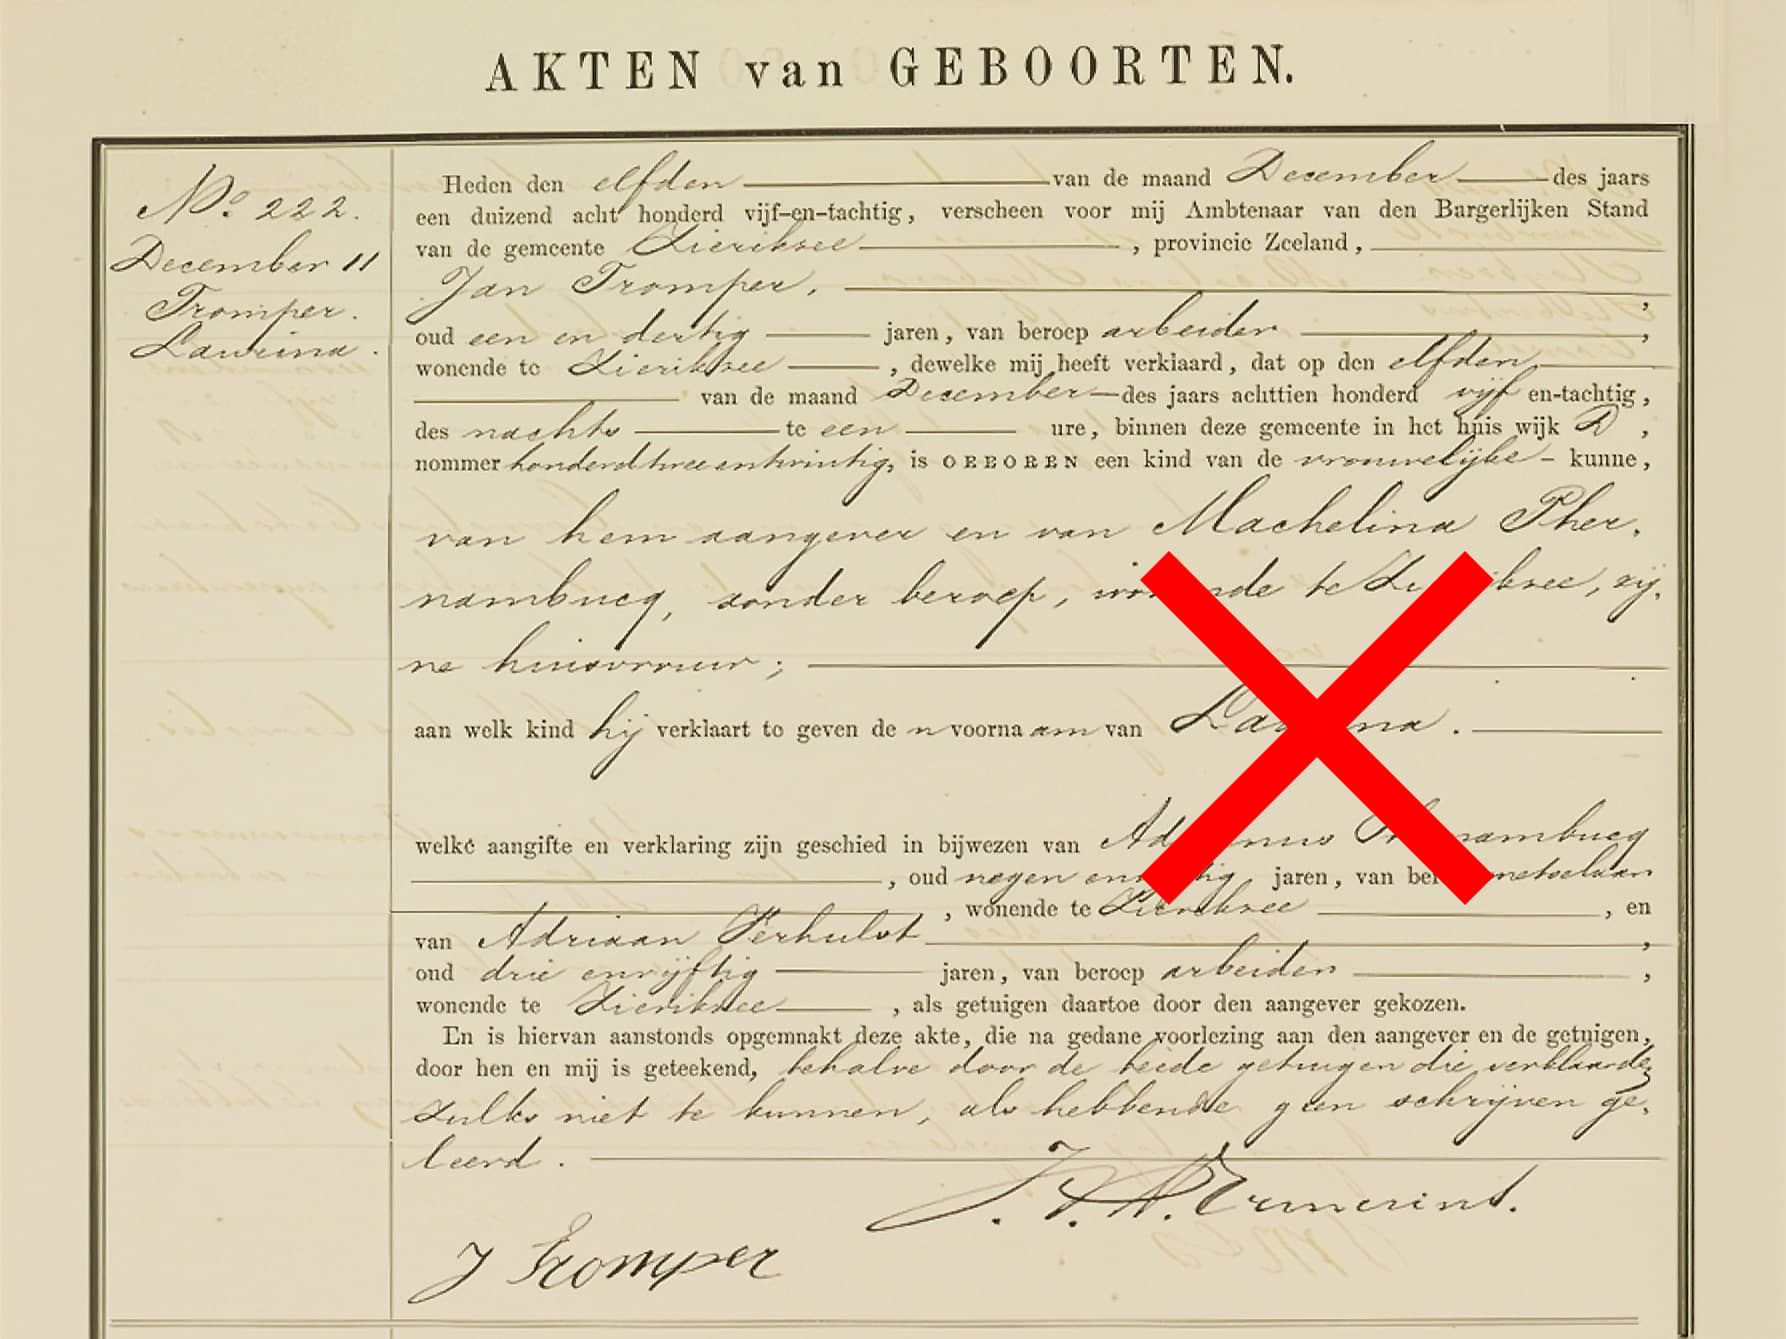 AKTEN van GEBOORTEN.
No. 222.
December 11
Tromper.
Laurina.
Heden den elfden van de maand December des jaars
een duizend acht honderd vijf-en-tachtig, verscheen voor mij Ambtenaar van den Bargerlijken Stand
van de gemeente Zierikzee, provincie Zeeland,
Jan Tromper,
oud een en dertig jaren, van beroep arbeider,
wonende te Zierikzee, dewelke mij heeft verklaard, dat op den elfden
van de maand December des jaars achttien honderd vijf en-tachtig,
des nachts te een ure, binnen deze gemeente in het huis wijk D,
nommer honderdtweeentwintig, is GEBOREN een kind van de vrouwelijke kunne,
van hem aangever en van Machelina Pher-
nambucq, zonder beroep, wonende te Zierikzee, zij-
ne huisvrouw;
aan welk kind hij verklaart te geven de n voornaam van Laurina.
welke aangifte en verklaring zijn geschied in bijwezen van Adrianus Phernambucq
, oud negen en jaren, van beroep metselaar
, wonende te Zierikzee, en
van Adriaan Verhulst,
oud drie envijftig jaren, van beroep arbeider,
wonende te Zierikzee, als getuigen daartoe door den aangever gekozen.
En is hiervan aanstonds opgemnakt deze akte, die na gedane voorlezing aan den aangever en de getuigen,
door hen en mij is geteekend, behalve door de beide getuigen die verklaarden
zulks niet te kunnen, als hebbende geen schrijven ge-
leerd.
J. A. Ermerins.
J Tromper